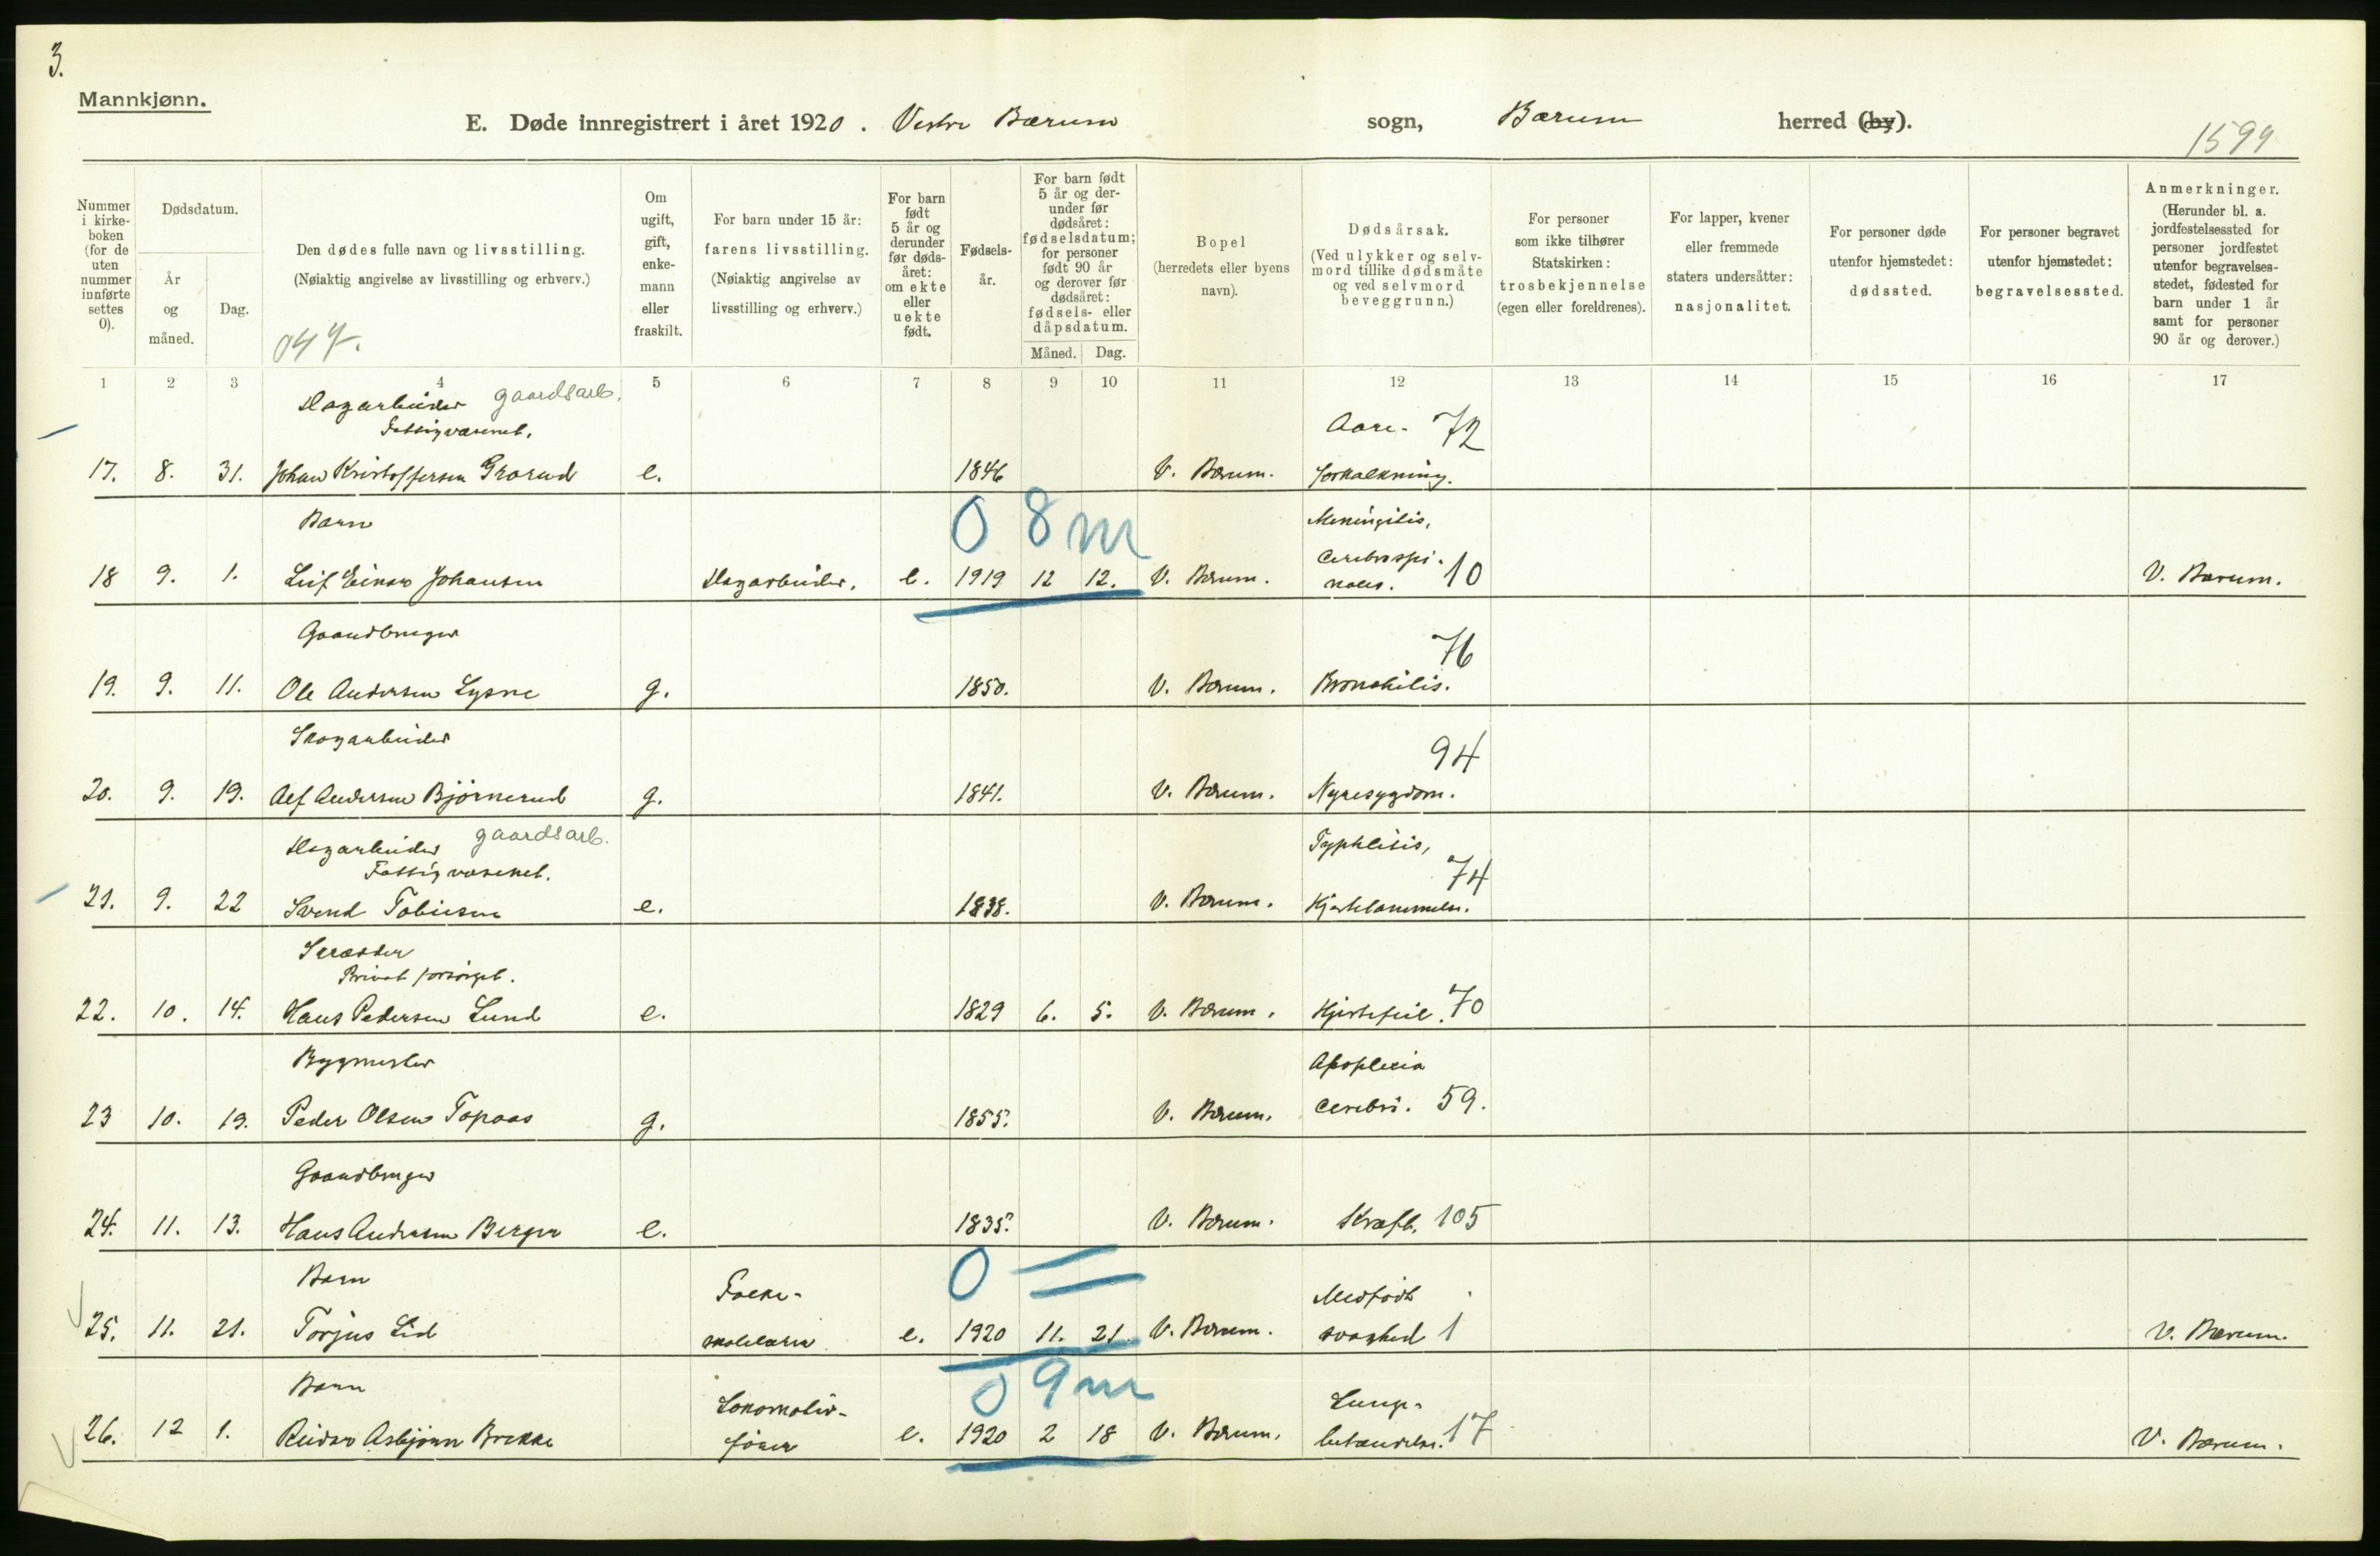 3.
Mannkjønn.
E. Døde innregistrert i året 1920. Vestre Bærum sogn, Bærum herred (by).
1599
Nummer i kirke-boken (for de uten nummer innførte settes 0).
Dødsdatum.
År og måned.
Dag.
Den dødes fulle navn og livsstilling.
(Nøiaktig angivelse av livsstilling og erhverv.)
Om ugift, gift, enke-mann eller fraskilt.
For barn under 15 år:
farens livsstilling.
(Nøiaktig angivelse av livsstilling og erhverv.)
For barn født 5 år og derunder før døds-året: om ekte eller uekte født.
Fødsels-år.
For barn født 5 år og der-under før dødsåret: fødselsdatum; for personer født 90 år og derover før dødsåret: fødsels- eller dåpsdatum.
Måned. Dag.
Bopel
(herredets eller byens navn).
Dødsårsak.
(Ved ulykker og selv-mord tillike dødsmåte og ved selvmord beveggrunn.)
For personer som ikke tilhører Statskirken: trosbekjennelse (egen eller foreldrenes).
For lapper, kvener eller fremmede staters undersåtter: nasjonalitet.
For personer døde utenfor hjemstedet: dødssted.
For personer begravet utenfor hjemstedet: begravelsessted.
Anmerkninger.
(Herunder bl. a. jordfestelsessted for personer jordfestet utenfor begravelses-stedet, fødested for barn under 1 år samt for personer 90 år og derover.)
1 2 3 4 5 6 7 8 9 10 11 12 13 14 15 16 17
Dagarbeider gaardsarb.
Fattigvæsenet. Aare- 72
17. 8. 31. Johan Kristoffersen Grorud e. 1846 V. Bærum. forkalkning.
Barn 0 8 m Meningitis,
Cerebrospi-
18 9. 1. Leif Einar Johansen Dagarbeider. e. 1919 12 12. V. Bærum. nalis. 10 V. Bærum.
Gaardbruger 76
19. 9. 11. Ole Andersen Lysne g. 1850. V. Bærum. Bronchitis.
Skogarbeider 94
20. 9. 19. Alf Andersen Bjørnerud g. 1841. V. Bærum. Nyresygdom.
Dagarbeider gaardsarb. Typhlitis,
Fattigvæsenet. 74
21. 9. 22 Svend Tobiesen e. 1838. V. Bærum. Hjertelammelse.
Skrædder
Privat forsørget.
22. 10. 14. Hans Pedersen Lund e. 1829 6. 5. V. Bærum. Hjertefeil. 70
Bygmester Apoplexia
23 10. 19. Peder Olsen Topaas g. 1855. V. Bærum. cerebri. 59.
Gaardbruger
24. 11. 13. Hans Andersen Berger e. 1835. V. Bærum. Kræft. 105
Barn Folke- 0 = Medfødt
25. 11. 21. Torjus Lid skolelærer e. 1920 11. 21. V. Bærum. svaghed 1 V. Bærum.
Barn Lokomotiv- 0 9 m Lunge-
26. 12 1. Reidar Asbjørn Brekke fører e. 1920 2 18 V. Bærum. betændelse. 17 V. Bærum.